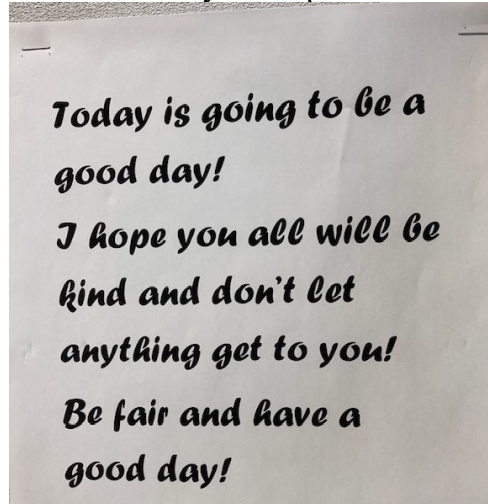 Today is going to be a
good day!
I hope you all will be
kind and don't let
anything get to you!
Be fair and have a
good day!